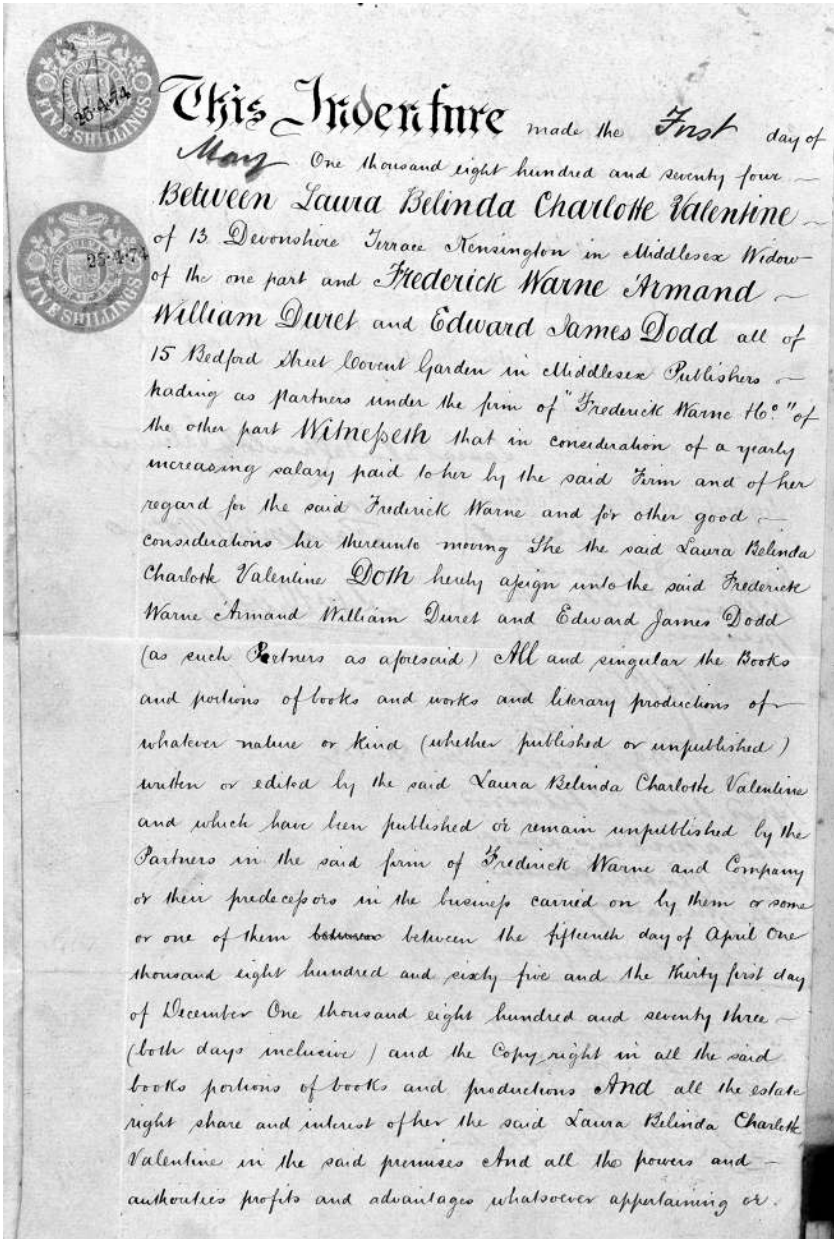 FIVE SHILLINGS
25·4·74
This Indenture made the First day of
May One thousand eight hundred and seventy four
Between Laura Belinda Charlotte Valentine
25·4·74
FIVE SHILLINGS
of 13 Devonshire Terrace Kensington in Middlesex Widow
of the one part and Frederick Warne Armand
William Duret and Edward James Dodd all of
15 Bedford Street Covent Garden in Middlesex Publishers
trading as Partners under the firm of "Frederick Warne & Co." of
the other part Witnesseth that in consideration of a yearly
increasing salary paid to her by the said Firm and of her
regard for the said Frederick Warne and for other good
considerations her thereunto moving She the said Laura Belinda
Charlotte Valentine Doth hereby assign unto the said Frederick
Warne Armand William Duret and Edward James Dodd
(as such Partners as aforesaid) All and singular the Books
and portions of books and works and literary productions of
whatever nature or kind (whether published or unpublished)
written or edited by the said Laura Belinda Charlotte Valentine
and which have been published or remain unpublished by the
Partners in the said firm of Frederick Warne and Company
or their predecessors in the business carried on by them or some
or one of them between between the fifteenth day of April One
thousand eight hundred and sixty five and the thirty first day
of December One thousand eight hundred and seventy three
(both days inclusive) and the Copy right in all the said
books portions of books and productions And all the estate
right share and interest of her the said Laura Belinda Charlotte
Valentine in the said premises And all the powers and
authorities profits and advantages whatsoever appertaining or